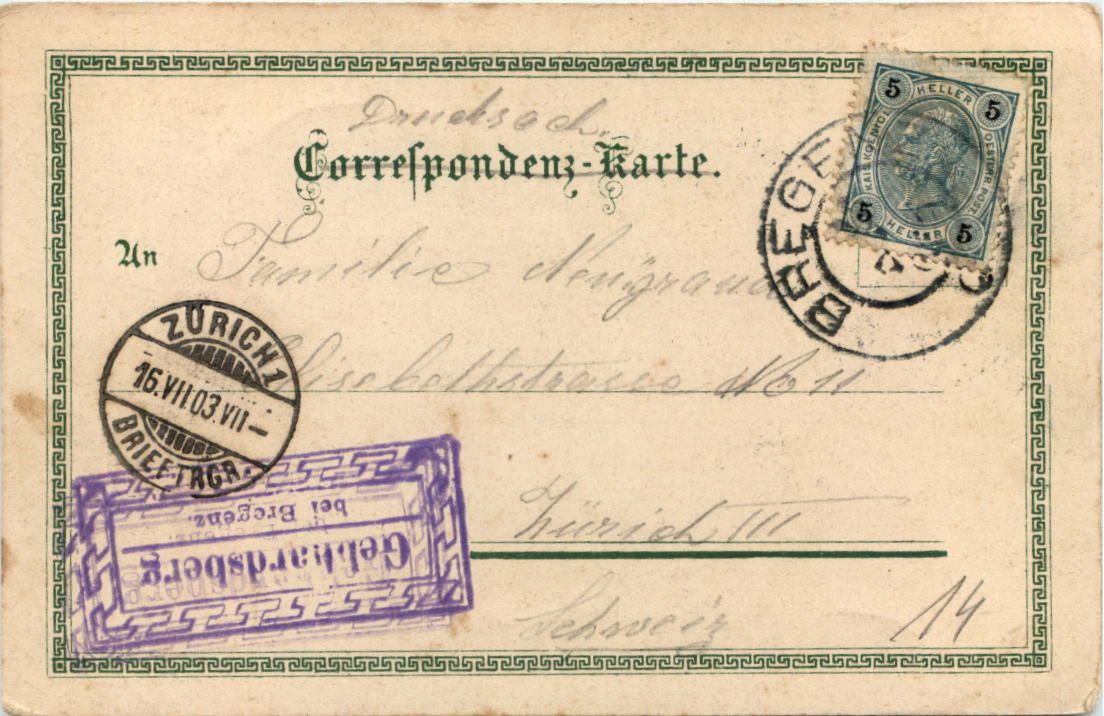 Drucksach.
Correspondenz-Karte.
5 HELLER 5
KAIS.KOENIGL. OESTERR.POST.
5 HELLER 5
BREGENZ
An Familie
Elisabethstrasse No 11
ZÜRICH 1
16.VII.03.VII–
BRIEFTRGR.
Zürich III
Schweiz
Gebhardsberg
bei Bregenz.
14